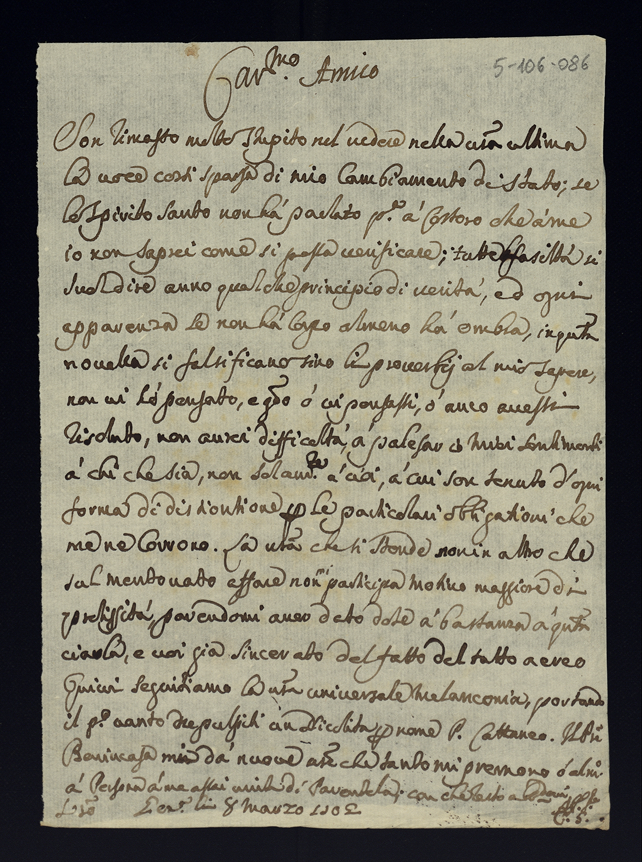 Car.mo Amico
5-106-086
Son rimasto molto stupito nel vedere nella vra ultima
la voce così sparsa di mio Cambiamento di stato; se
lo Spirito Santo non há parlato p.a á Costoro che á me
io non saprei come si possa verificare; tutte falsitá si
suol dire anno qualche principio di veritá, ed ogni
apparenza se non há corpo almeno há ombra, in qsta
novella si falsificano sino li proverbij al mio sapere,
non vi hó pensato, e qdo ó vi pensassi, ó anco avessi
risoluto, non avrei difficoltá, á palesar i miei sentimenti
á chi che sia, non solam.te á voi, á cui son tenuto d'ogni
forma di distintione p le particolari obligationi che
me ne corrono. La vra che si stende non in altro che
sul mentovato affare non mi participa motivo maggiore di
prolissitá, parendomi aver dato dose á bastanza á qsta
ciarla, e voi giá sincerato del fatto del tutto aereo
Quivi seguitiamo la vra universale melanconia, portando
il p.o vanto de pulpiti un Scolita p nome P. Cattaneo. Il
Benincasa mi dá nuove che tanto mi premono
á Persona á me assai unita di Parentela; con che
li 8 Marzo